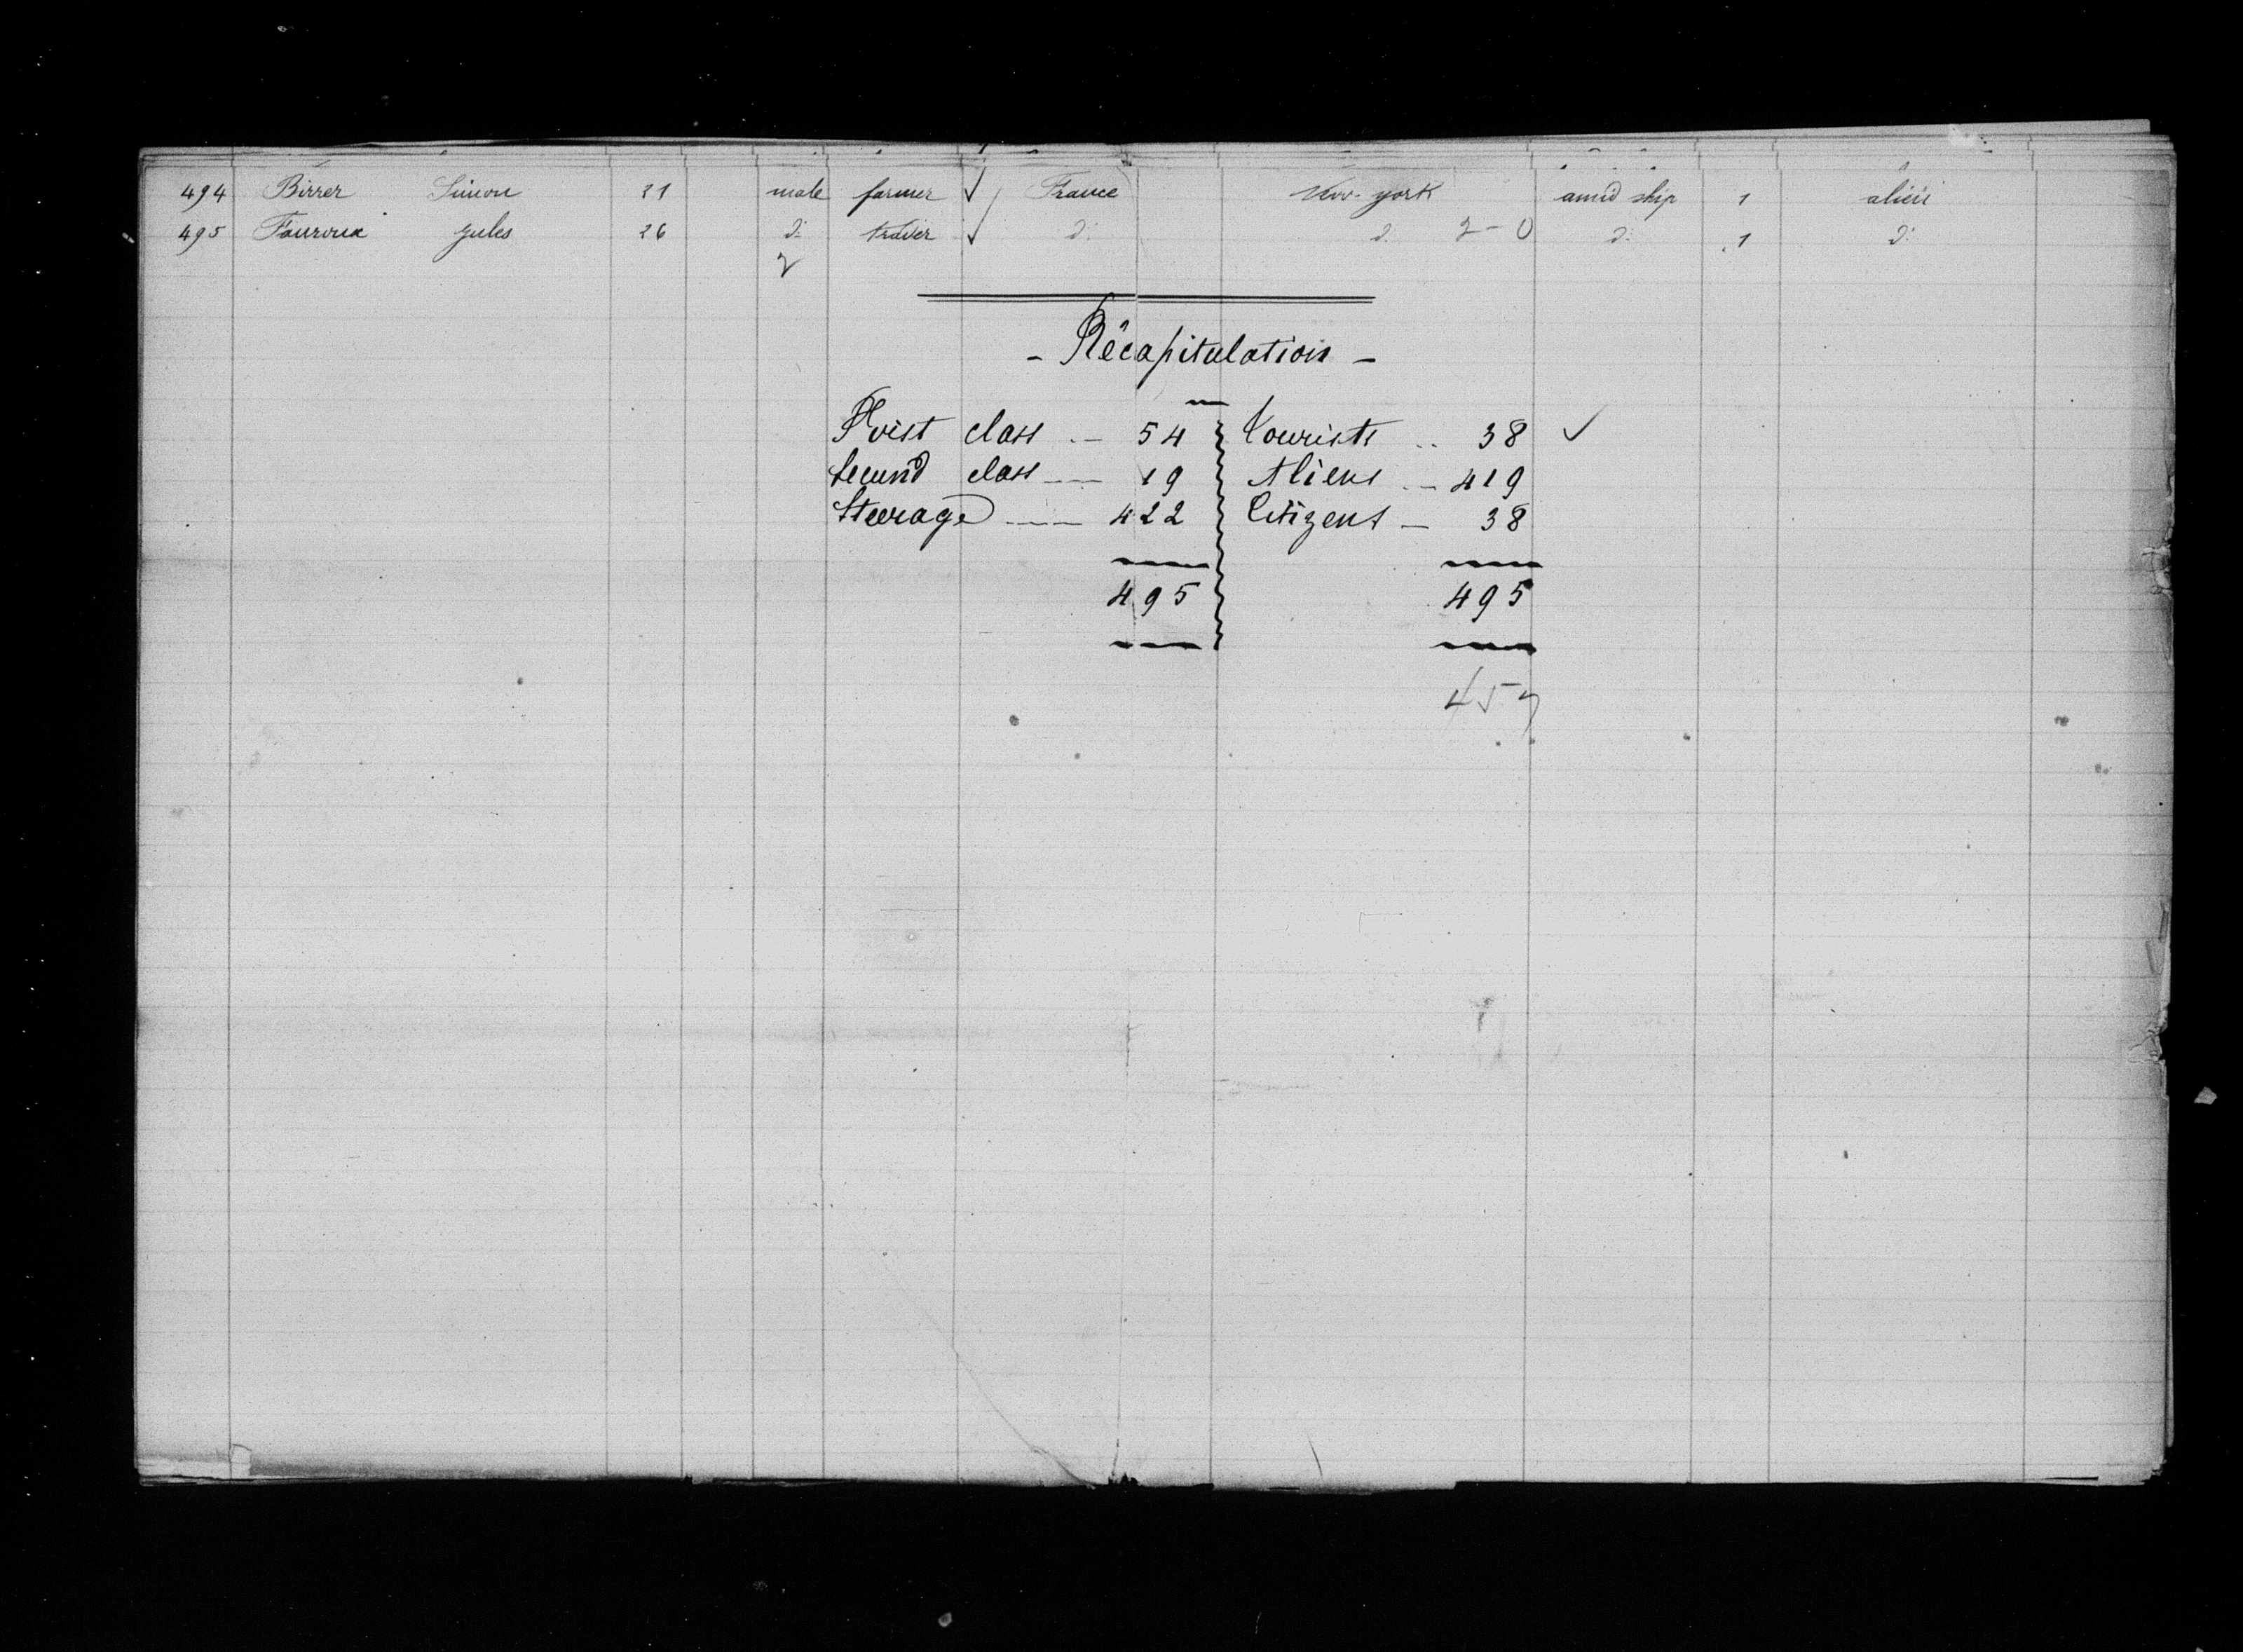 494 Birrer Simon 21 male farmer √ France New-york amid ship 1 alien
495 Fauroux Jules 26 d: trader √ d: d. 2-0 d: 1 d:
2
- Récapitulation -
First class .— 54 Tourists .. 38 ✓
Second class —— 19 Aliens .— 419
Steerage —— 422 Citizens — 38
495 495
457